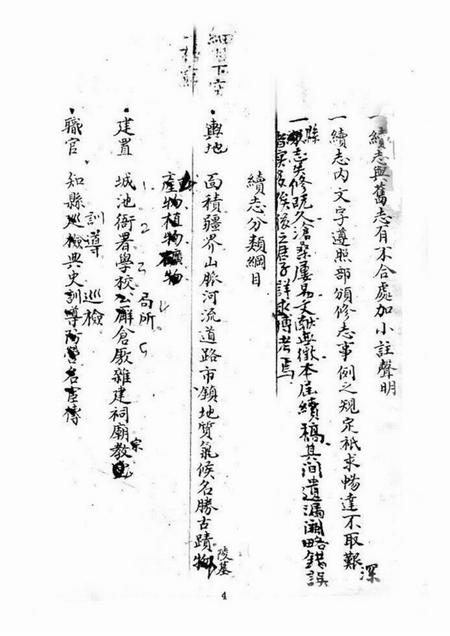 一續志與舊志有不合處加小註聲明
一續志內文字遵照部頒修志事例之規定祇求暢達不取艱深
一縣志失修既久滄桑屢易文獻無徵本屆續稿其間遺漏闕略錯誤
實多俟後之君子詳求博考焉
續志分類綱目
輿地 面積疆界山脈河流道路市鎮地質氣候名勝古蹟陵墓物
產物植物礦物
建置 城池衙署學校公廨倉廒雜建祠廟宗教
局所
訓導 巡檢
職官 知縣巡檢典史訓導防營名宦傳
細目下空
4